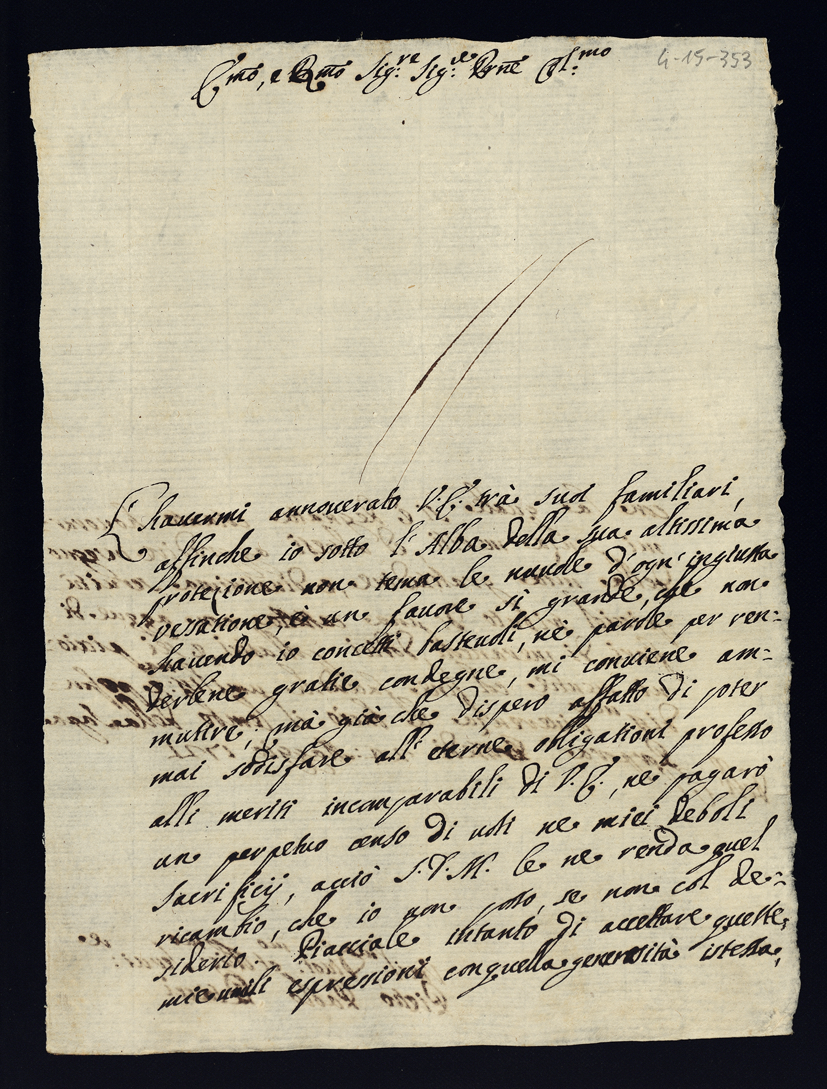 Em̃o, e Rm̃o Sig.re Sig.re Prñe Col.mo
4-15-353
L'havermi annoverato V.E. trà suoi familiari,
affinche io sotto l'Alba della sua altissima
protezione non tema le nuvole d'ogn'ingiusta
vesatione, è un favore si grande, che non
havendo io concetti bastevoli, nè parole per ren=
derlene gratie condegne, mi conviene am=
mutire; mà già che dispero affatto di poter
mai sodisfare all'eterne obligationi professo
alli meriti incomparabili di V.E., ne pagarò
un perpetuo censo di voti ne miei deboli
Sacrificij, acciò S.D.M. le ne renda quel
ricambio, che io non posso, se non col de=
siderio. Piacciale intanto di accettare queste
mie umili espressioni con quella generosità istessa,